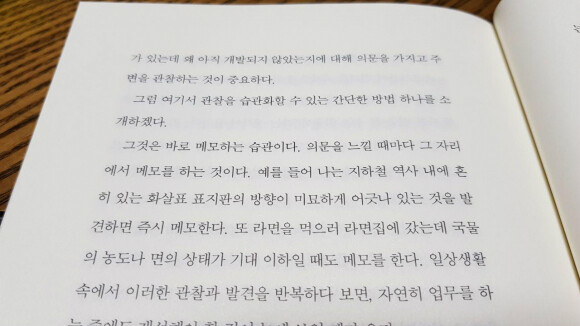 가 있는데 왜 아직 개발되지 않았는지에 대해 의문을 가지고 주
변을 관찰하는 것이 중요하다.
그럼 여기서 관찰을 습관화할 수 있는 간단한 방법 하나를 소
개하겠다.
그것은 바로 메모하는 습관이다. 의문을 느낄 때마다 그 자리
에서 메모를 하는 것이다. 예를 들어 나는 지하철 역사 내에 흔
히 있는 화살표 표지판의 방향이 미묘하게 어긋나 있는 것을 발
견하면 즉시 메모한다. 또 라면을 먹으러 라면집에 갔는데 국물
의 농도나 면의 상태가 기대 이하일 때도 메모를 한다. 일상생활
속에서 이러한 관찰과 발견을 반복하다 보면, 자연히 업무를 하